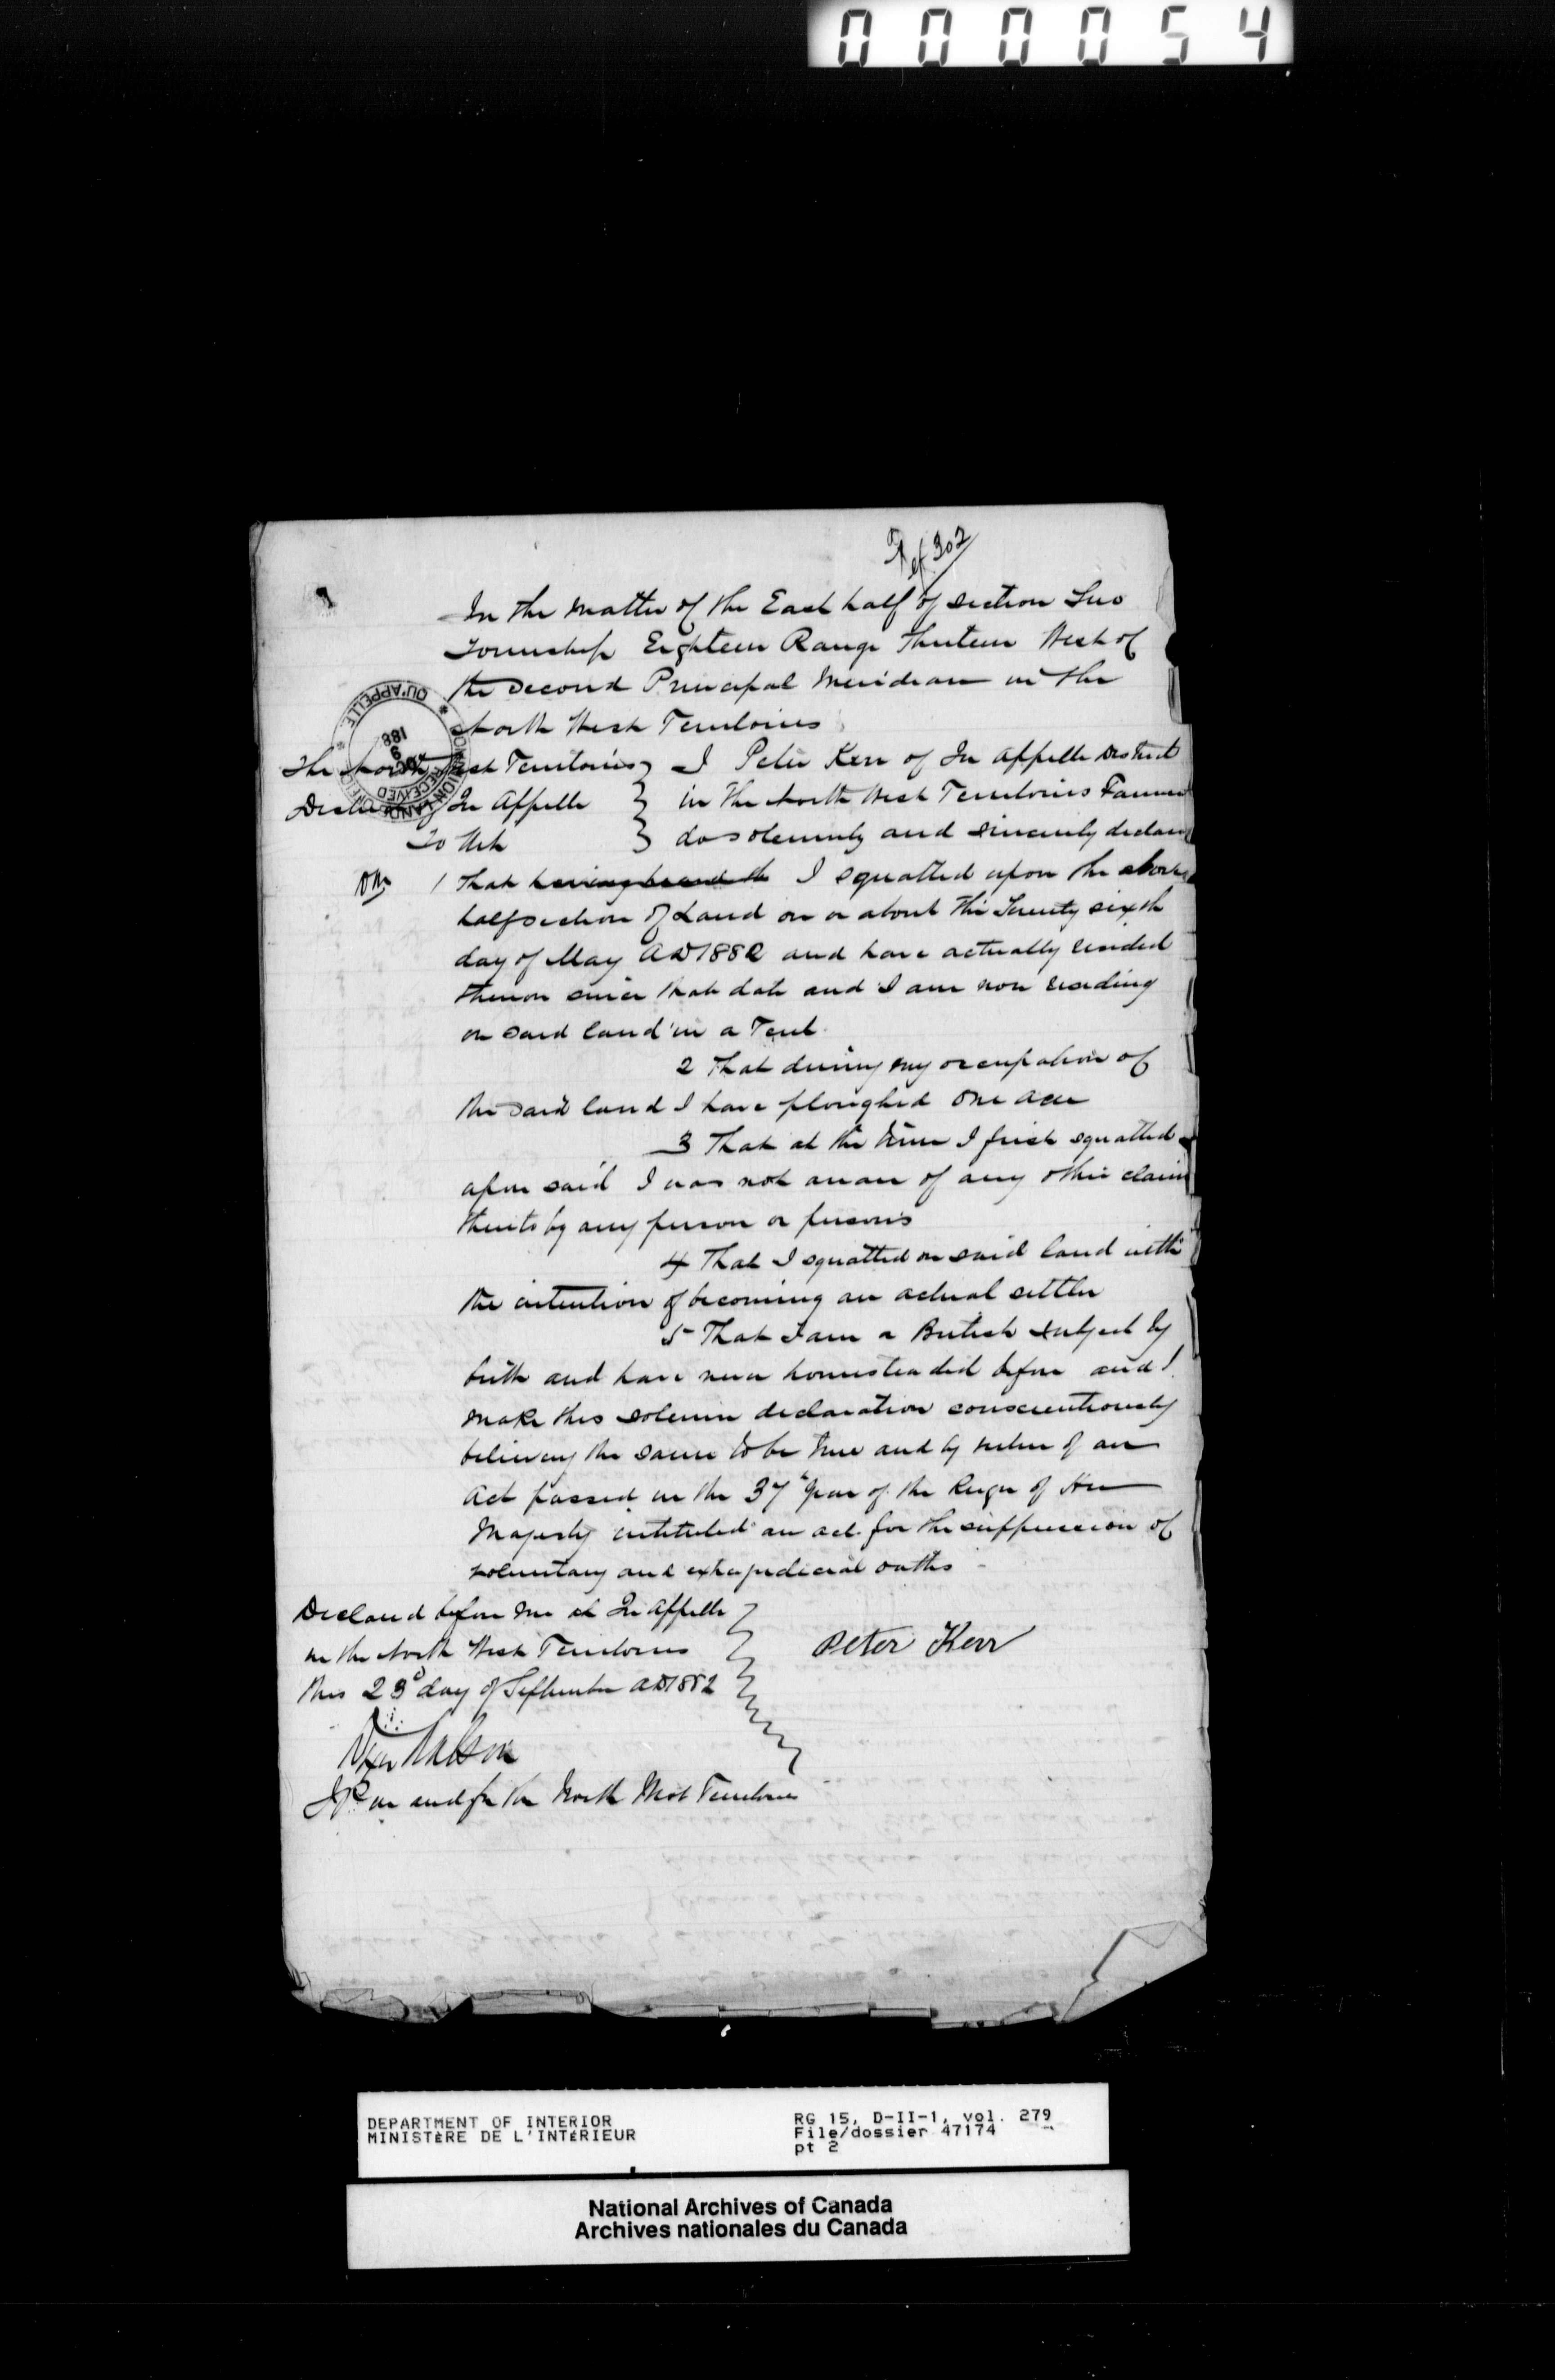 000054
Ref 302
In the matter of the East half of section Two
Township Eighteen Range Thirteen West of
the Second Principal Meridian in the
North West Territories
QU'APPELLE
188
RECEIVED
DOMINION LANDS OFFICE
The North West Territories
District of Qu Appelle
To Wit
I Peter Kerr of Qu Appelle District
in the North West Territories Farmer
do solemnly and sincerely declare
1 That having heard the I squatted upon the above
half section of Land on or about the Twenty sixth
day of May AD 1882 and have actually resided
thereon since that date and I am now residing
on said land in a Tent
2 That during my occupation of
the said land I have ploughed One acre
3 That at the time I first squatted
upon said I was not aware of any other claim
thereto by any person or persons
4 That I squatted on said land with
the intention of becoming an actual settler
5 That I am a British subject by
birth and have never homesteaded before and I
make this solemn declaration conscientiously
believing the same to be true and by virtue of an
Act passed in the 37th year of the Reign of Her
Majesty intituled an act for the suppression of
voluntary and extrajudicial oaths
Declared before me at Qu Appelle
in the North West Territories
this 23d day of September AD 1882
Peter Kerr
JP in and for the North West Territories
DEPARTMENT OF INTERIOR
MINISTÈRE DE L'INTÉRIEUR
RG 15, D-II-1, vol. 279
File/dossier 47174
pt 2
National Archives of Canada
Archives nationales du Canada